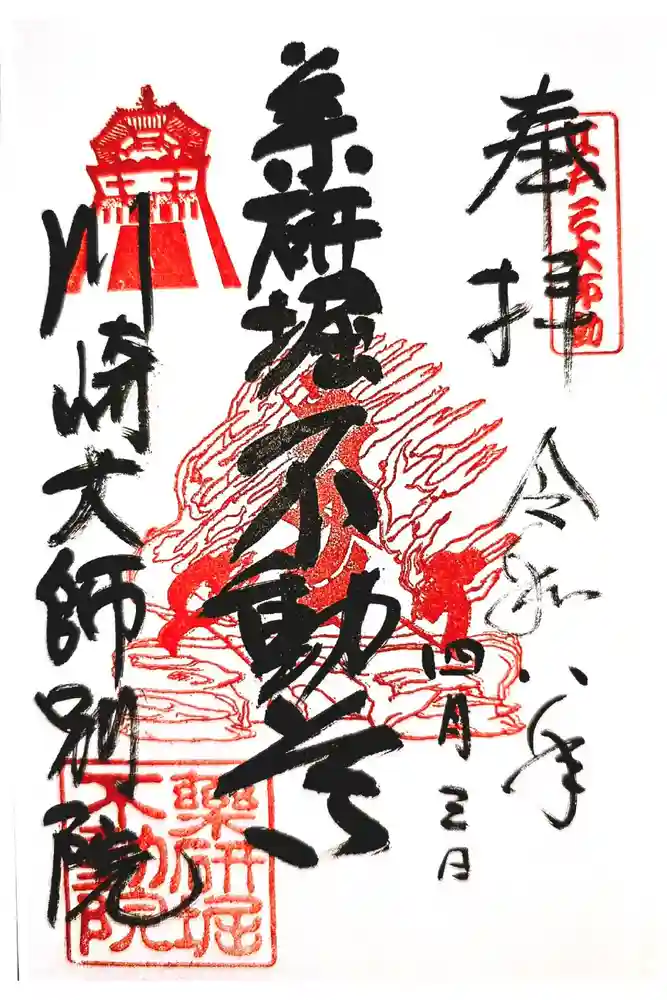 奉拝
江戸三大不動
令和八年
四月三日
薬研堀不動尊
川崎大師別院
薬研堀
不動院